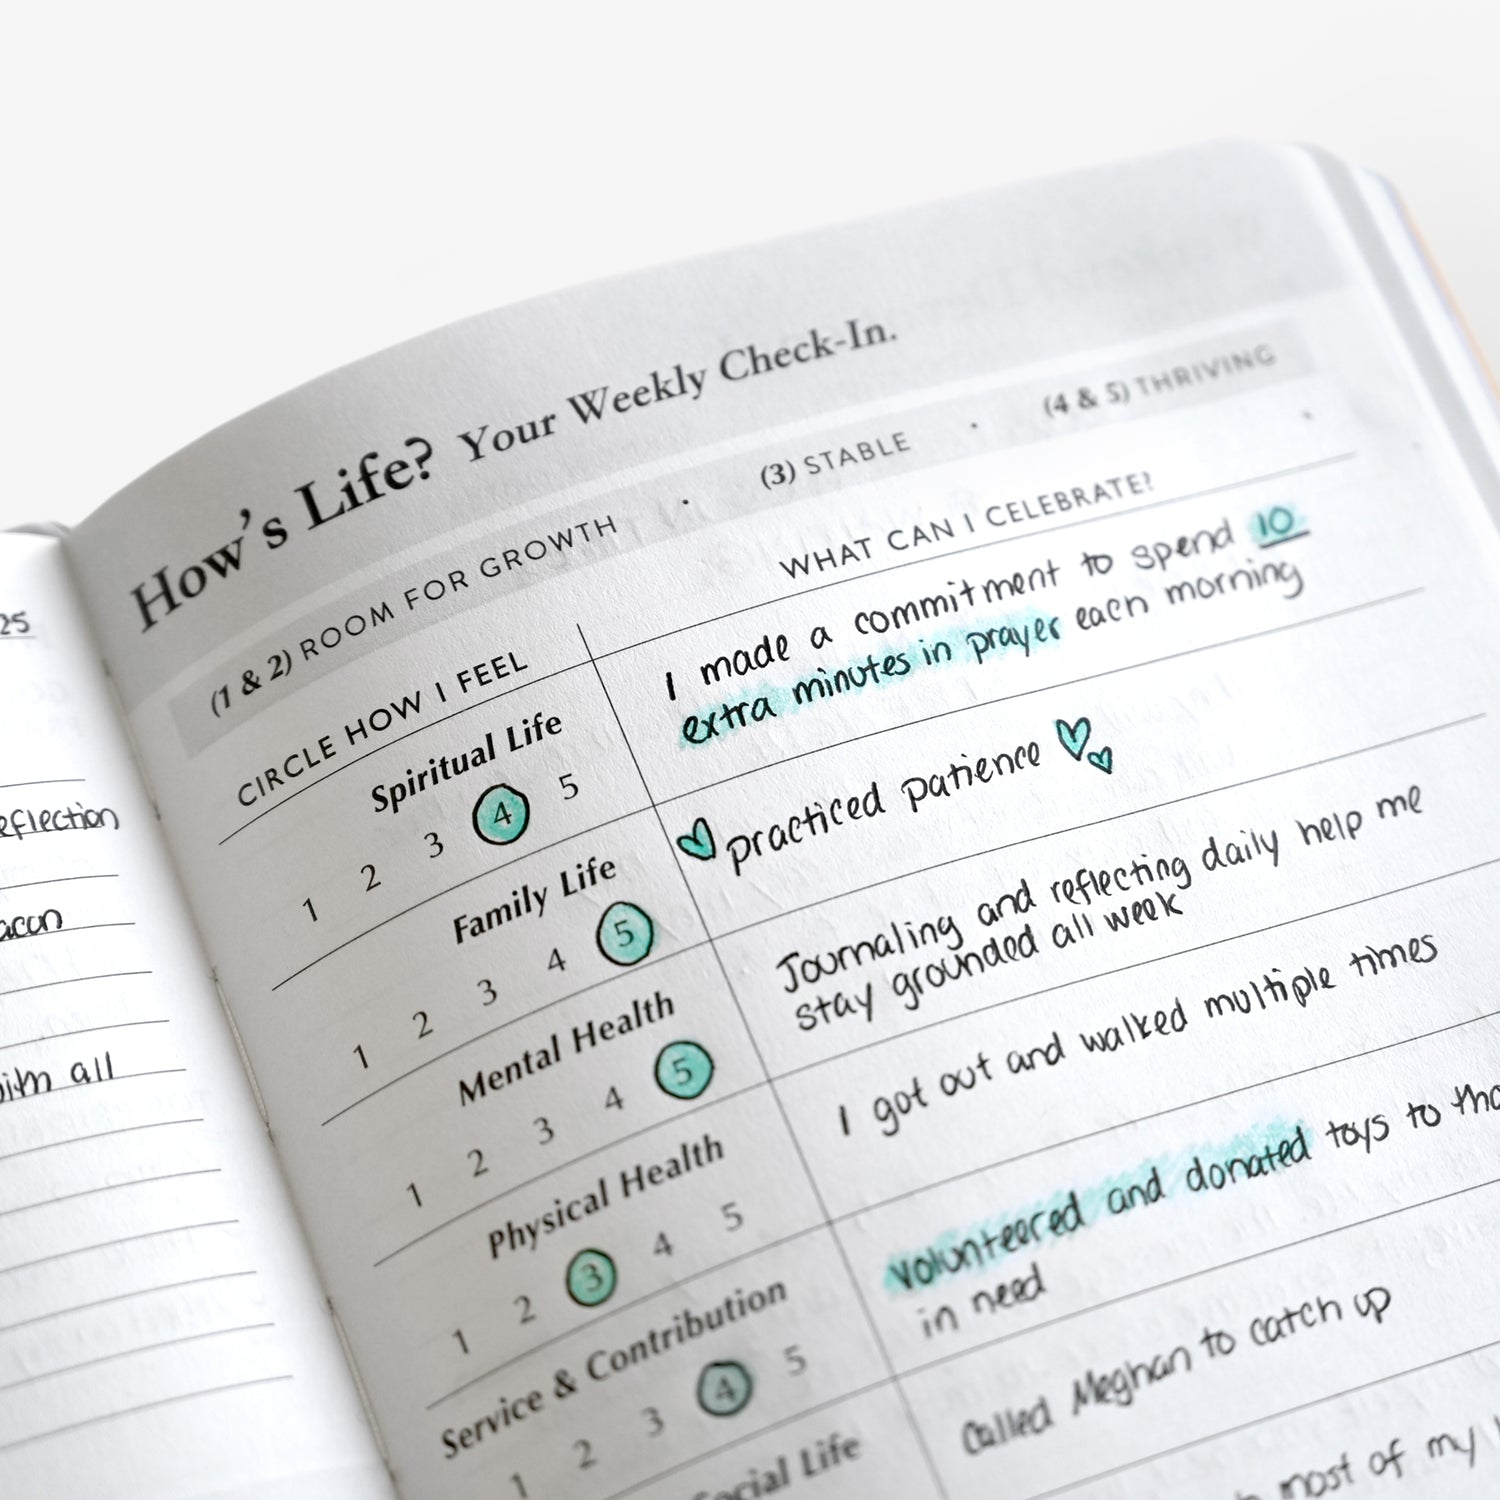 25
reflection
all
How's Life? Your Weekly Check-In.
(1 & 2) ROOM FOR GROWTH · (3) STABLE · (4 & 5) THRIVING
CIRCLE HOW I FEEL
WHAT CAN I CELEBRATE?
Spiritual Life
1 2 3 4 5
I made a commitment to spend 10
extra minutes in prayer each morning
Family Life
1 2 3 4 5
practiced patience
Mental Health
1 2 3 4 5
Journaling and reflecting daily help me
stay grounded all week
Physical Health
1 2 3 4 5
I got out and walked multiple times
Service & Contribution
1 2 3 4 5
Volunteered and donated toys to
in need
Social Life
Called Meghan to catch up
most of my